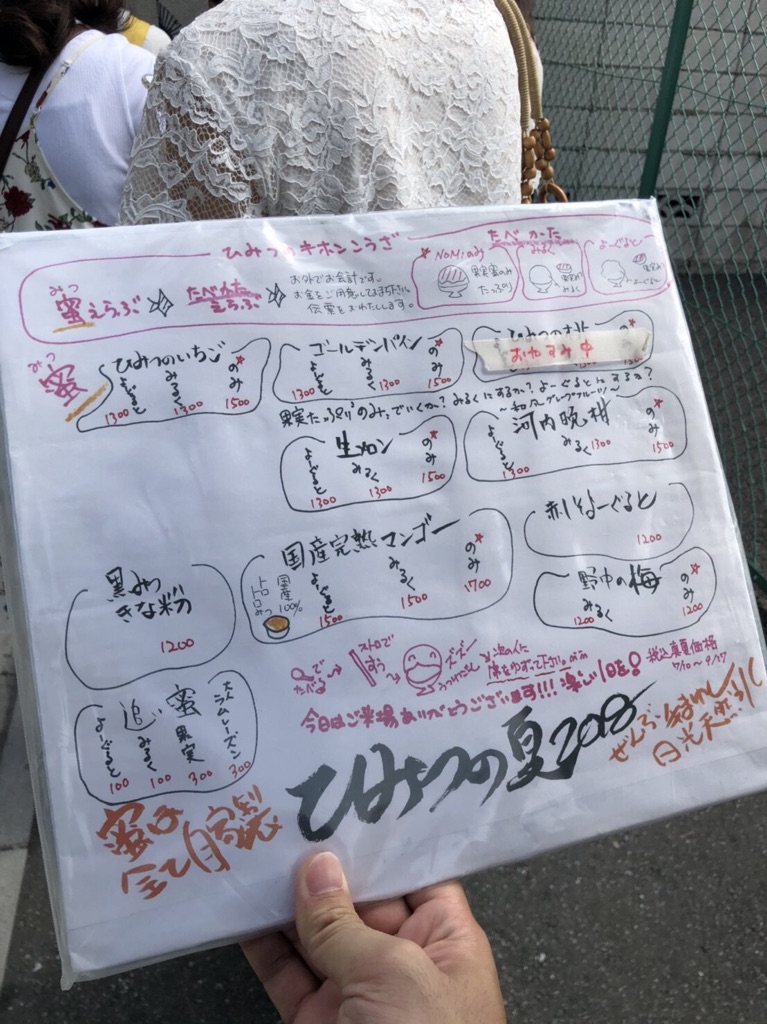 ひみつのキホンこうざ
みつ
蜜えらぶ
たべかた
えらぶ
お外でお会計です。
お金をご用意してまち下さい
伝票をおわたしします。
たべかた
☆NoMiのみ
果実蜜のみ
たっぷり
みるく
よーぐると
みつ
蜜
ひみつのいちご
よーぐると 1300
みるく 1300
のみ☆ 1500
ゴールデンパイン
よーぐると 1300
みるく 1300
のみ☆ 1500
ひみつの桃
おやすみ中
果実たっぷり"のみ"でいくか？みるくにするか？よーぐるとにするか？
生メロン
よーぐると 1300
みるく 1300
のみ☆ 1500
～和風グレープフルーツ～
河内晩柑
よーぐると 1300
みるく 1300
のみ☆ 1500
赤しそよーぐると
1200
黒みつ
きな粉
1200
国産完熟マンゴー
国産100%
トロトロみつ
よーぐると 1500
みるく 1500
のみ☆ 1700
野中の梅
みるく 1200
のみ☆ 1200
追い蜜
よーぐると 100
みるく 100
果実 300
大人ラムレーズン 300
でたべる
ストローですう
ズズー
うつわだし
次の人に
席をゆずって下さい
税込真夏価格
7/10～9/17
今日はご来場ありがとうございます!!!楽しい1日を!
ひみつの夏2018
ぜんぶ
日光天然氷
蜜は
全て自家製